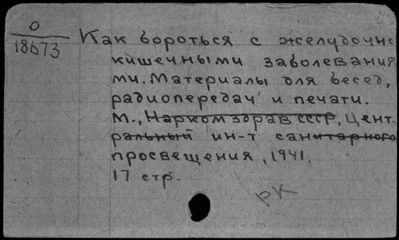 О
18673
Как бороться с желудочно
кишечными заболевания
ми. Материалы для бесед,
радиопередач и печати.
М., Наркомздрав СССР, Цент-
ральный ин-т санитарного
просвещения, 1941.
17 стр.
РК